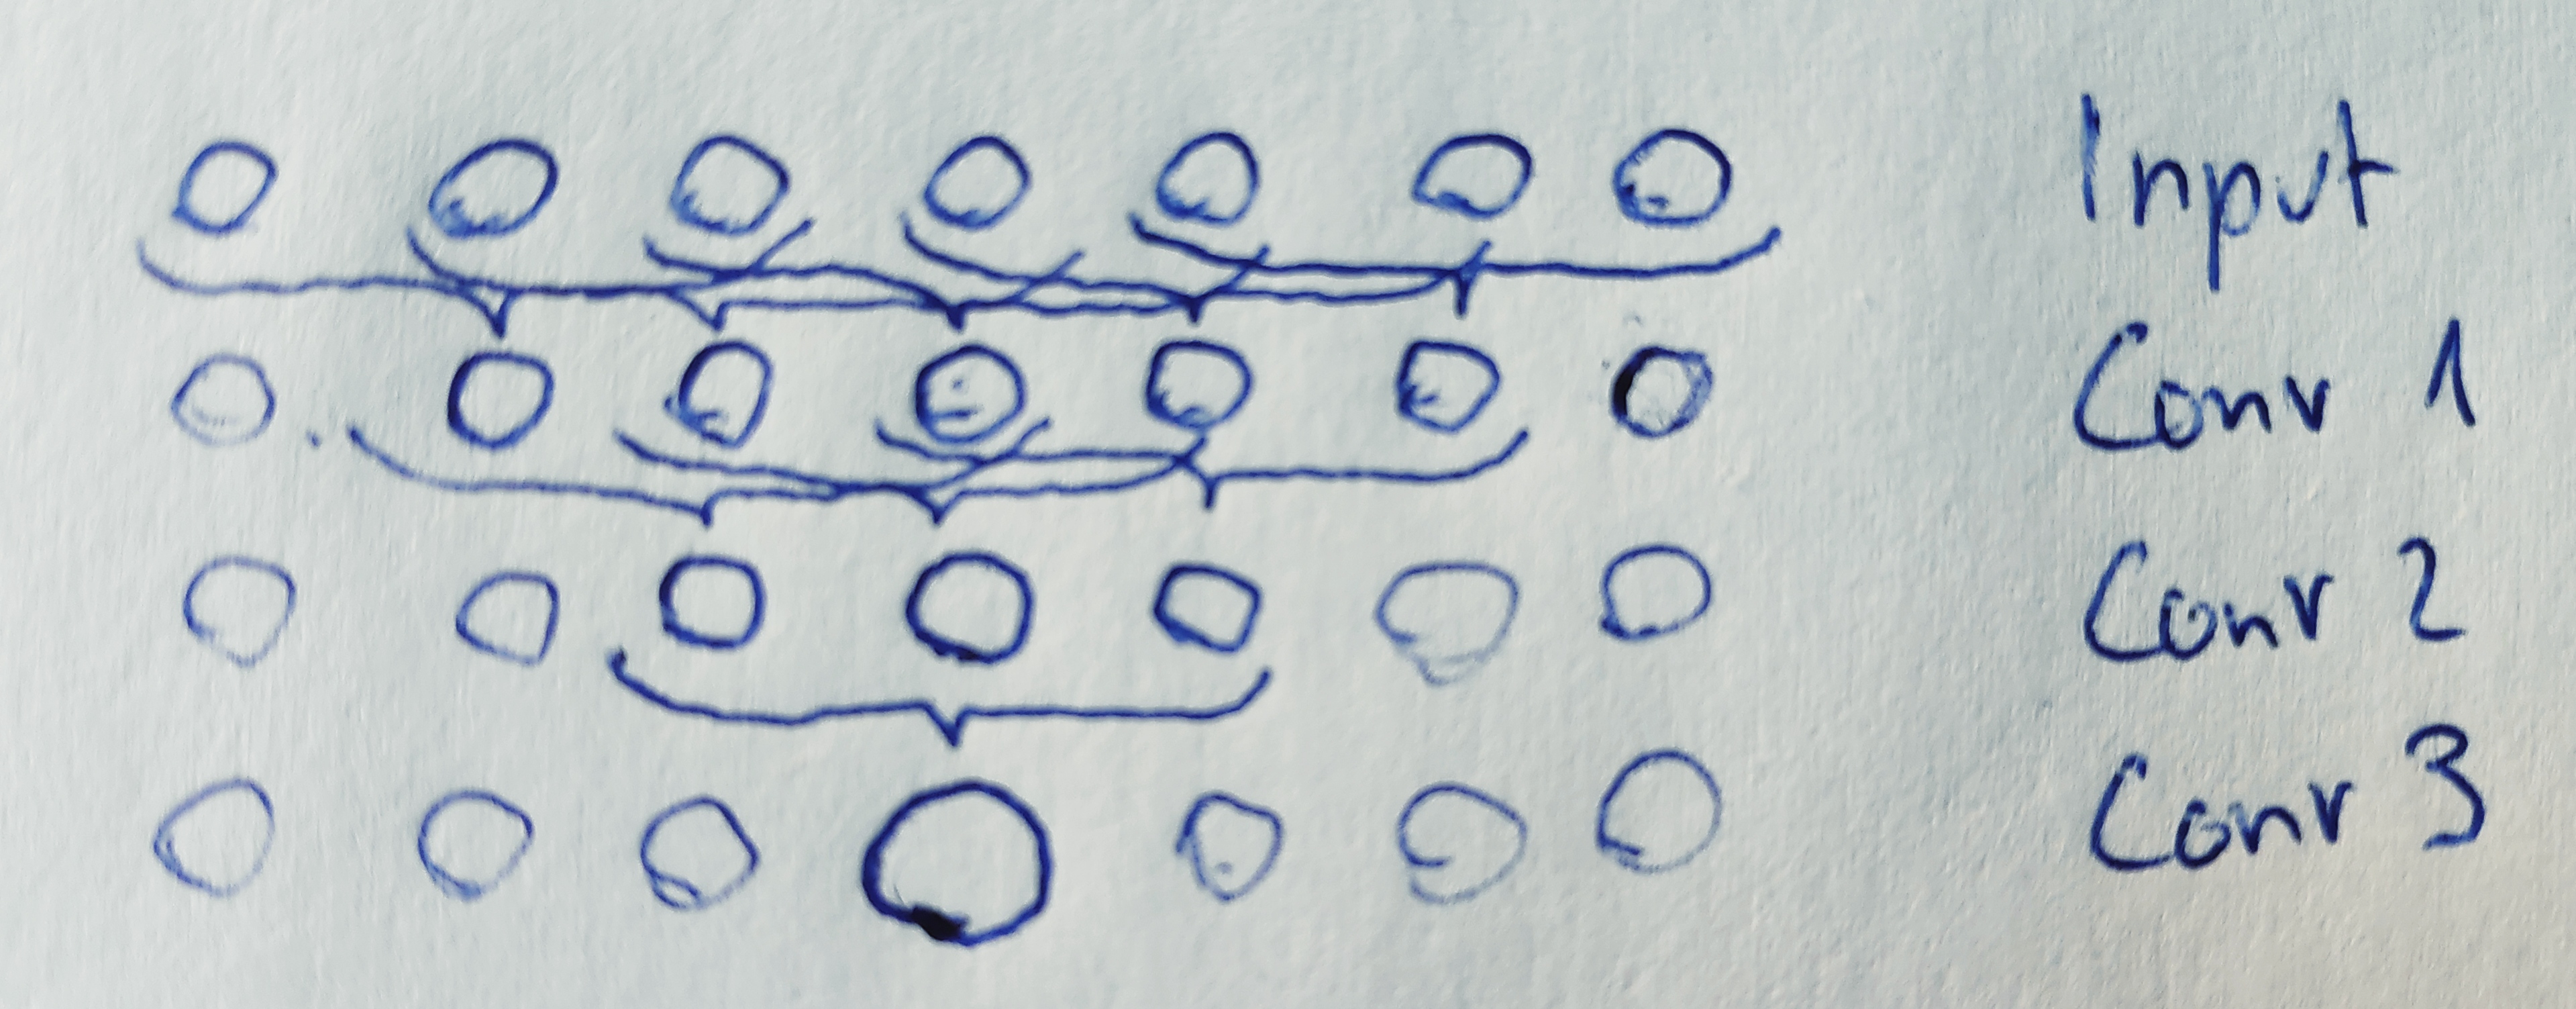 Input
Conv 1
Conv 2
Conv 3